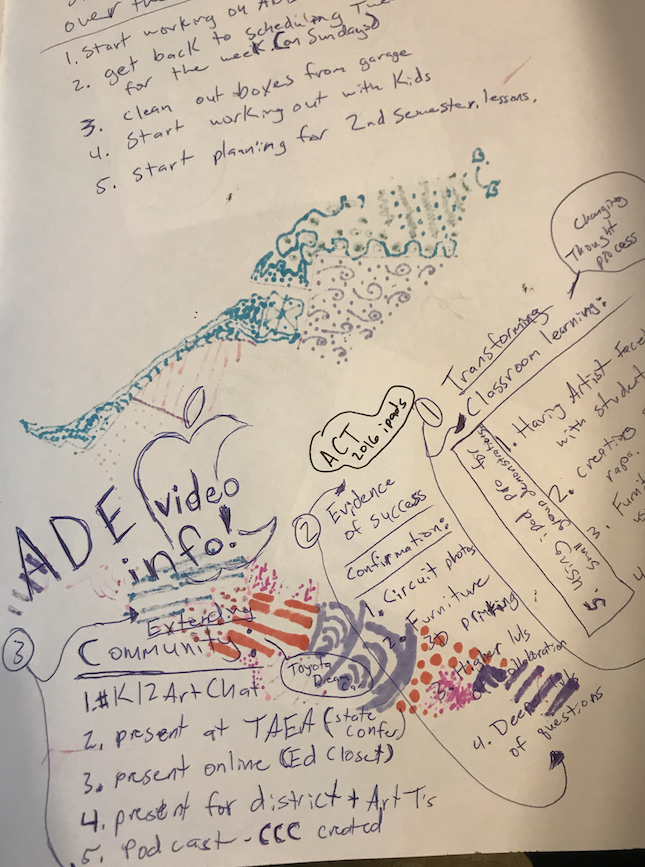 over the
1. Start working on AD
2. get back to scheduling Tue
for the week. (on Sundays)
3. clean out boxes from garage
4. Start working out with Kids
5. Start planning for 2nd Semester lessons.
Changing
Thought
process
1
Transforming
Classroom learning:
1. Having Artist
with student
2. creating
raps.
3.
4
5. using ipad pro for
small group demonstrations
ACT
2016 ipads
2
Evidence
of Success
Confirmation:
1. Circuit photos
2. Furniture
3D printing
3. Higher lvls
of collaboration
4. Deep lvls
of questions
ADE video
info!
3
Extending
Community:
Toyota
Dream
1. #K12ArtChat
2. present at TAEA (state
Confer)
3. present online (Ed Closet)
4. present for district + Art T's
5. Podcast - CCC created